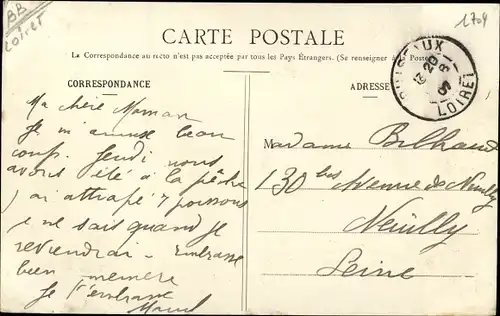 BB
Loiret
1704
CARTE POSTALE
La Correspondance au recto n'est pas acceptée par tous les Pays Étrangers. (Se renseigner à la Poste)
CORRESPONDANCE
ADRESSE
PUISEAUX
LOIRET
Ma chère Maman
Je m'amuse beau
coup. Jeudi nous
avons été à la pêche
j ai attrapé 7 poissons
je ne sais quand je
reviendrai. Embrasse
bien mémère
Je t'embrasse
Marcel
Madame Bilhaud
130 bis Avenue de Neuilly
Neuilly
Seine